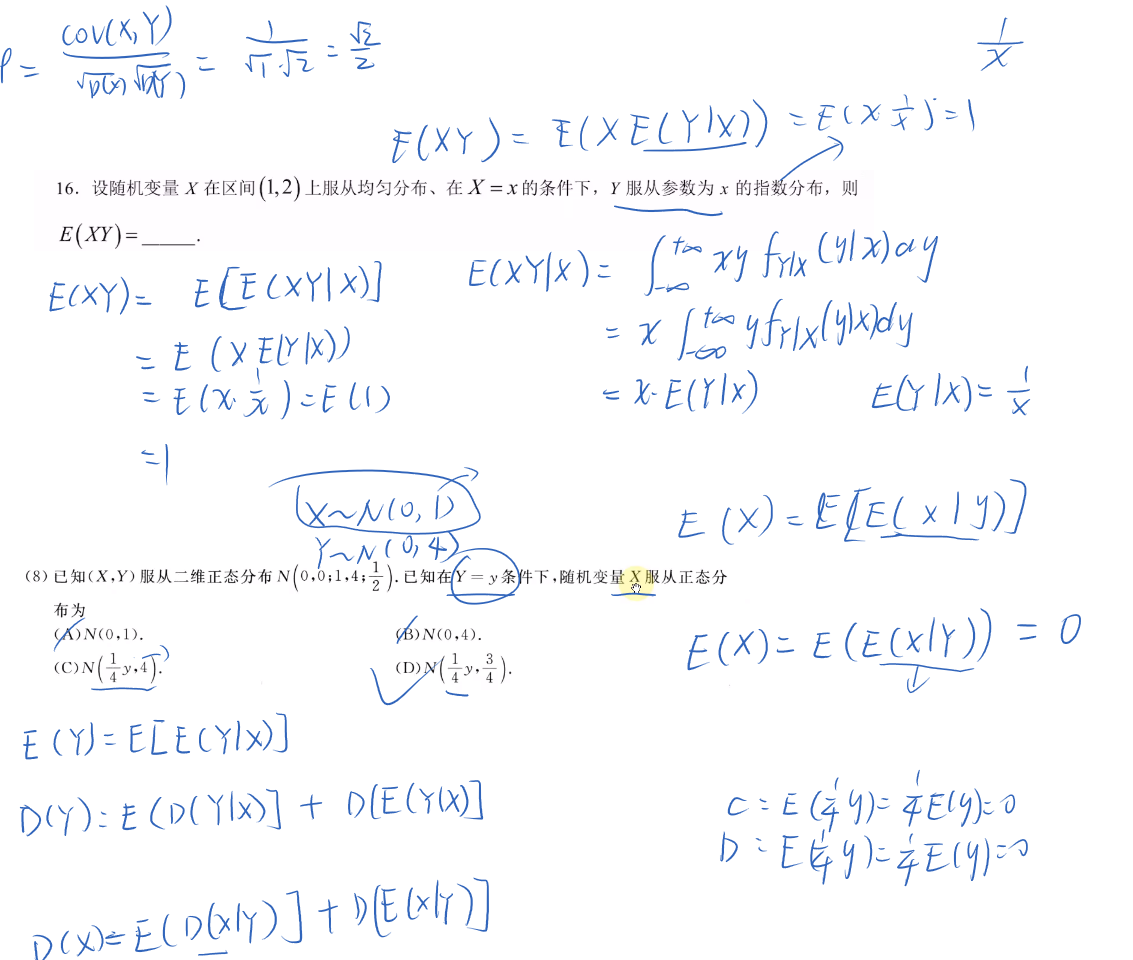 ρ = cov(X,Y) / √D(X) √D(Y) = 1 / √1·√2 = √2 / 2
1/x
E(XY) = E(X E(Y|X)) = E(X·1/X) = 1
16. 设随机变量 X 在区间(1,2)上服从均匀分布、在 X=x 的条件下, Y 服从参数为 x 的指数分布, 则
E(XY)=_____.
E(XY)= E[E(XY|X)]
= E (X E(Y|X))
= E(X·1/X) = E(1)
=1
E(XY|X) = ∫_{-∞}^{+∞} xy f_{Y|X}(y|x)dy
= x ∫_{-∞}^{+∞} y f_{Y|X}(y|x)dy
= x·E(Y|X)
E(Y|X) = 1/x
X~N(0,1)
Y~N(0,4)
E(X) = E[E(x|y)]
(8) 已知(X,Y)服从二维正态分布N(0,0;1,4;1/2).已知在Y=y条件下,随机变量X服从正态分
布为
(A)N(0,1).
(B)N(0,4).
(C)N(1/4 y,4).
(D)N(1/4 y,3/4).
E(X) = E(E(X|Y)) = 0
E(Y) = E[E(Y|X)]
D(Y) = E(D(Y|X)] + D[E(Y|X)]
C = E(1/4 y) = 1/4 E(y) = 0
D = E(1/4 y) = 1/4 E(y) = 0
D(X) = E(D(X|Y)] + D[E(X|Y)]